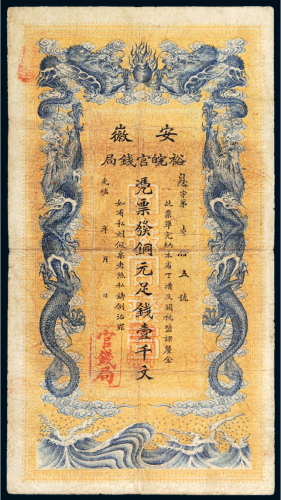 安徽
裕皖官錢局
字第 拾五號
此票準完納本省丁漕及關稅鹽課釐金
憑票發銅元足錢壹千文
如有私刻假票者照私鑄例治罪
光緒 年 月 日
官錢局